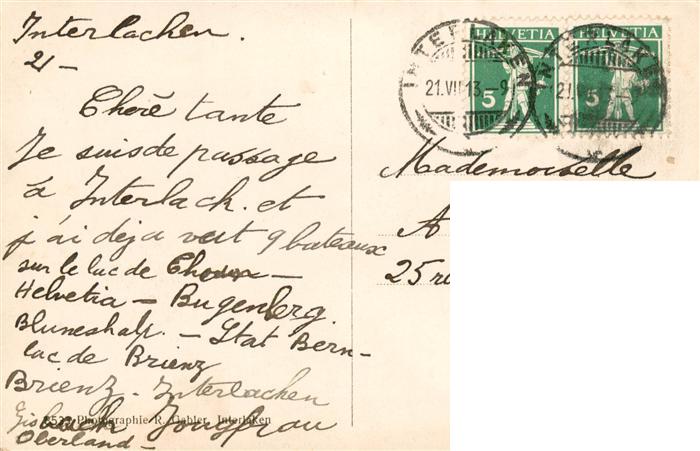 Interlachen.
21-
Cherè tante
Je suis de passage
à Interlach. et
j'ai deja vut 9 bateaux
sur le lac de Thoun -
Helvetia - Bugenberg.
Blumeshalp. - Stat Bern -
lac de Brienz
Brienz - Interlachen
Gisbach Jongfrau
Oberland -
8532 Photographie R. Gabler, Interlaken
HELVETIA HELVETIA
5 5
INTERLAKEN INTERLAKEN
21.VII.13.-9
Mademoiselle
A
25 ru